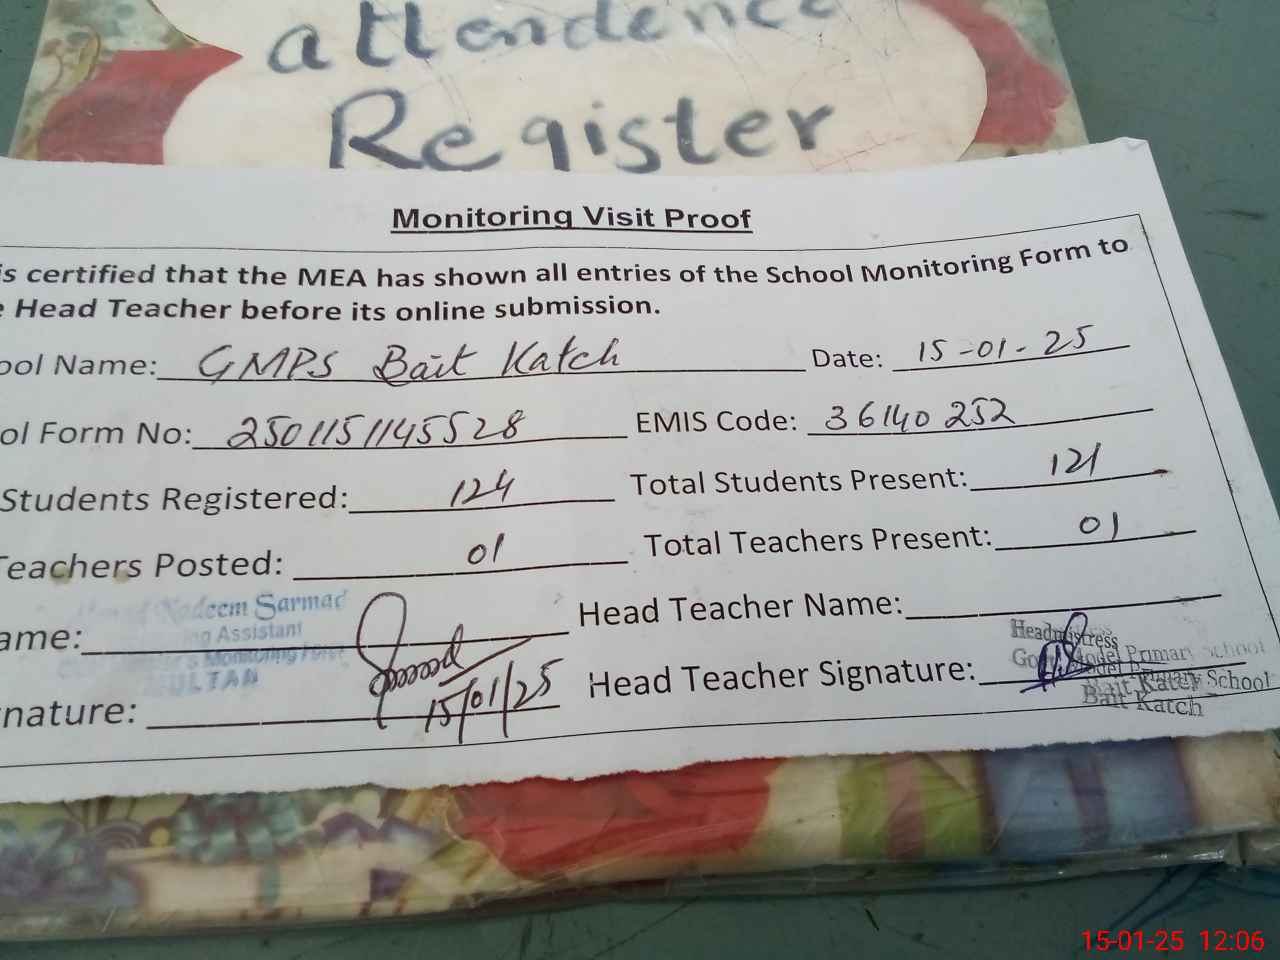 attendence
Register
Monitoring Visit Proof
is certified that the MEA has shown all entries of the School Monitoring Form to
e Head Teacher before its online submission.
ool Name: GMPS Bait Katch Date: 15-01-25
ol Form No: 2501151145528 EMIS Code: 36140252
Students Registered: 124 Total Students Present: 121
Teachers Posted: 01 Total Teachers Present: 01
Nadeem Sarmad
ng Assistant
Monitoring Force
MULTAN
ame: Head Teacher Name:
nature: 15/01/25 Head Teacher Signature:
Headmistress
Govt. Model Primary School
Bait Katch School
Bait Katch
15-01-25 12:06